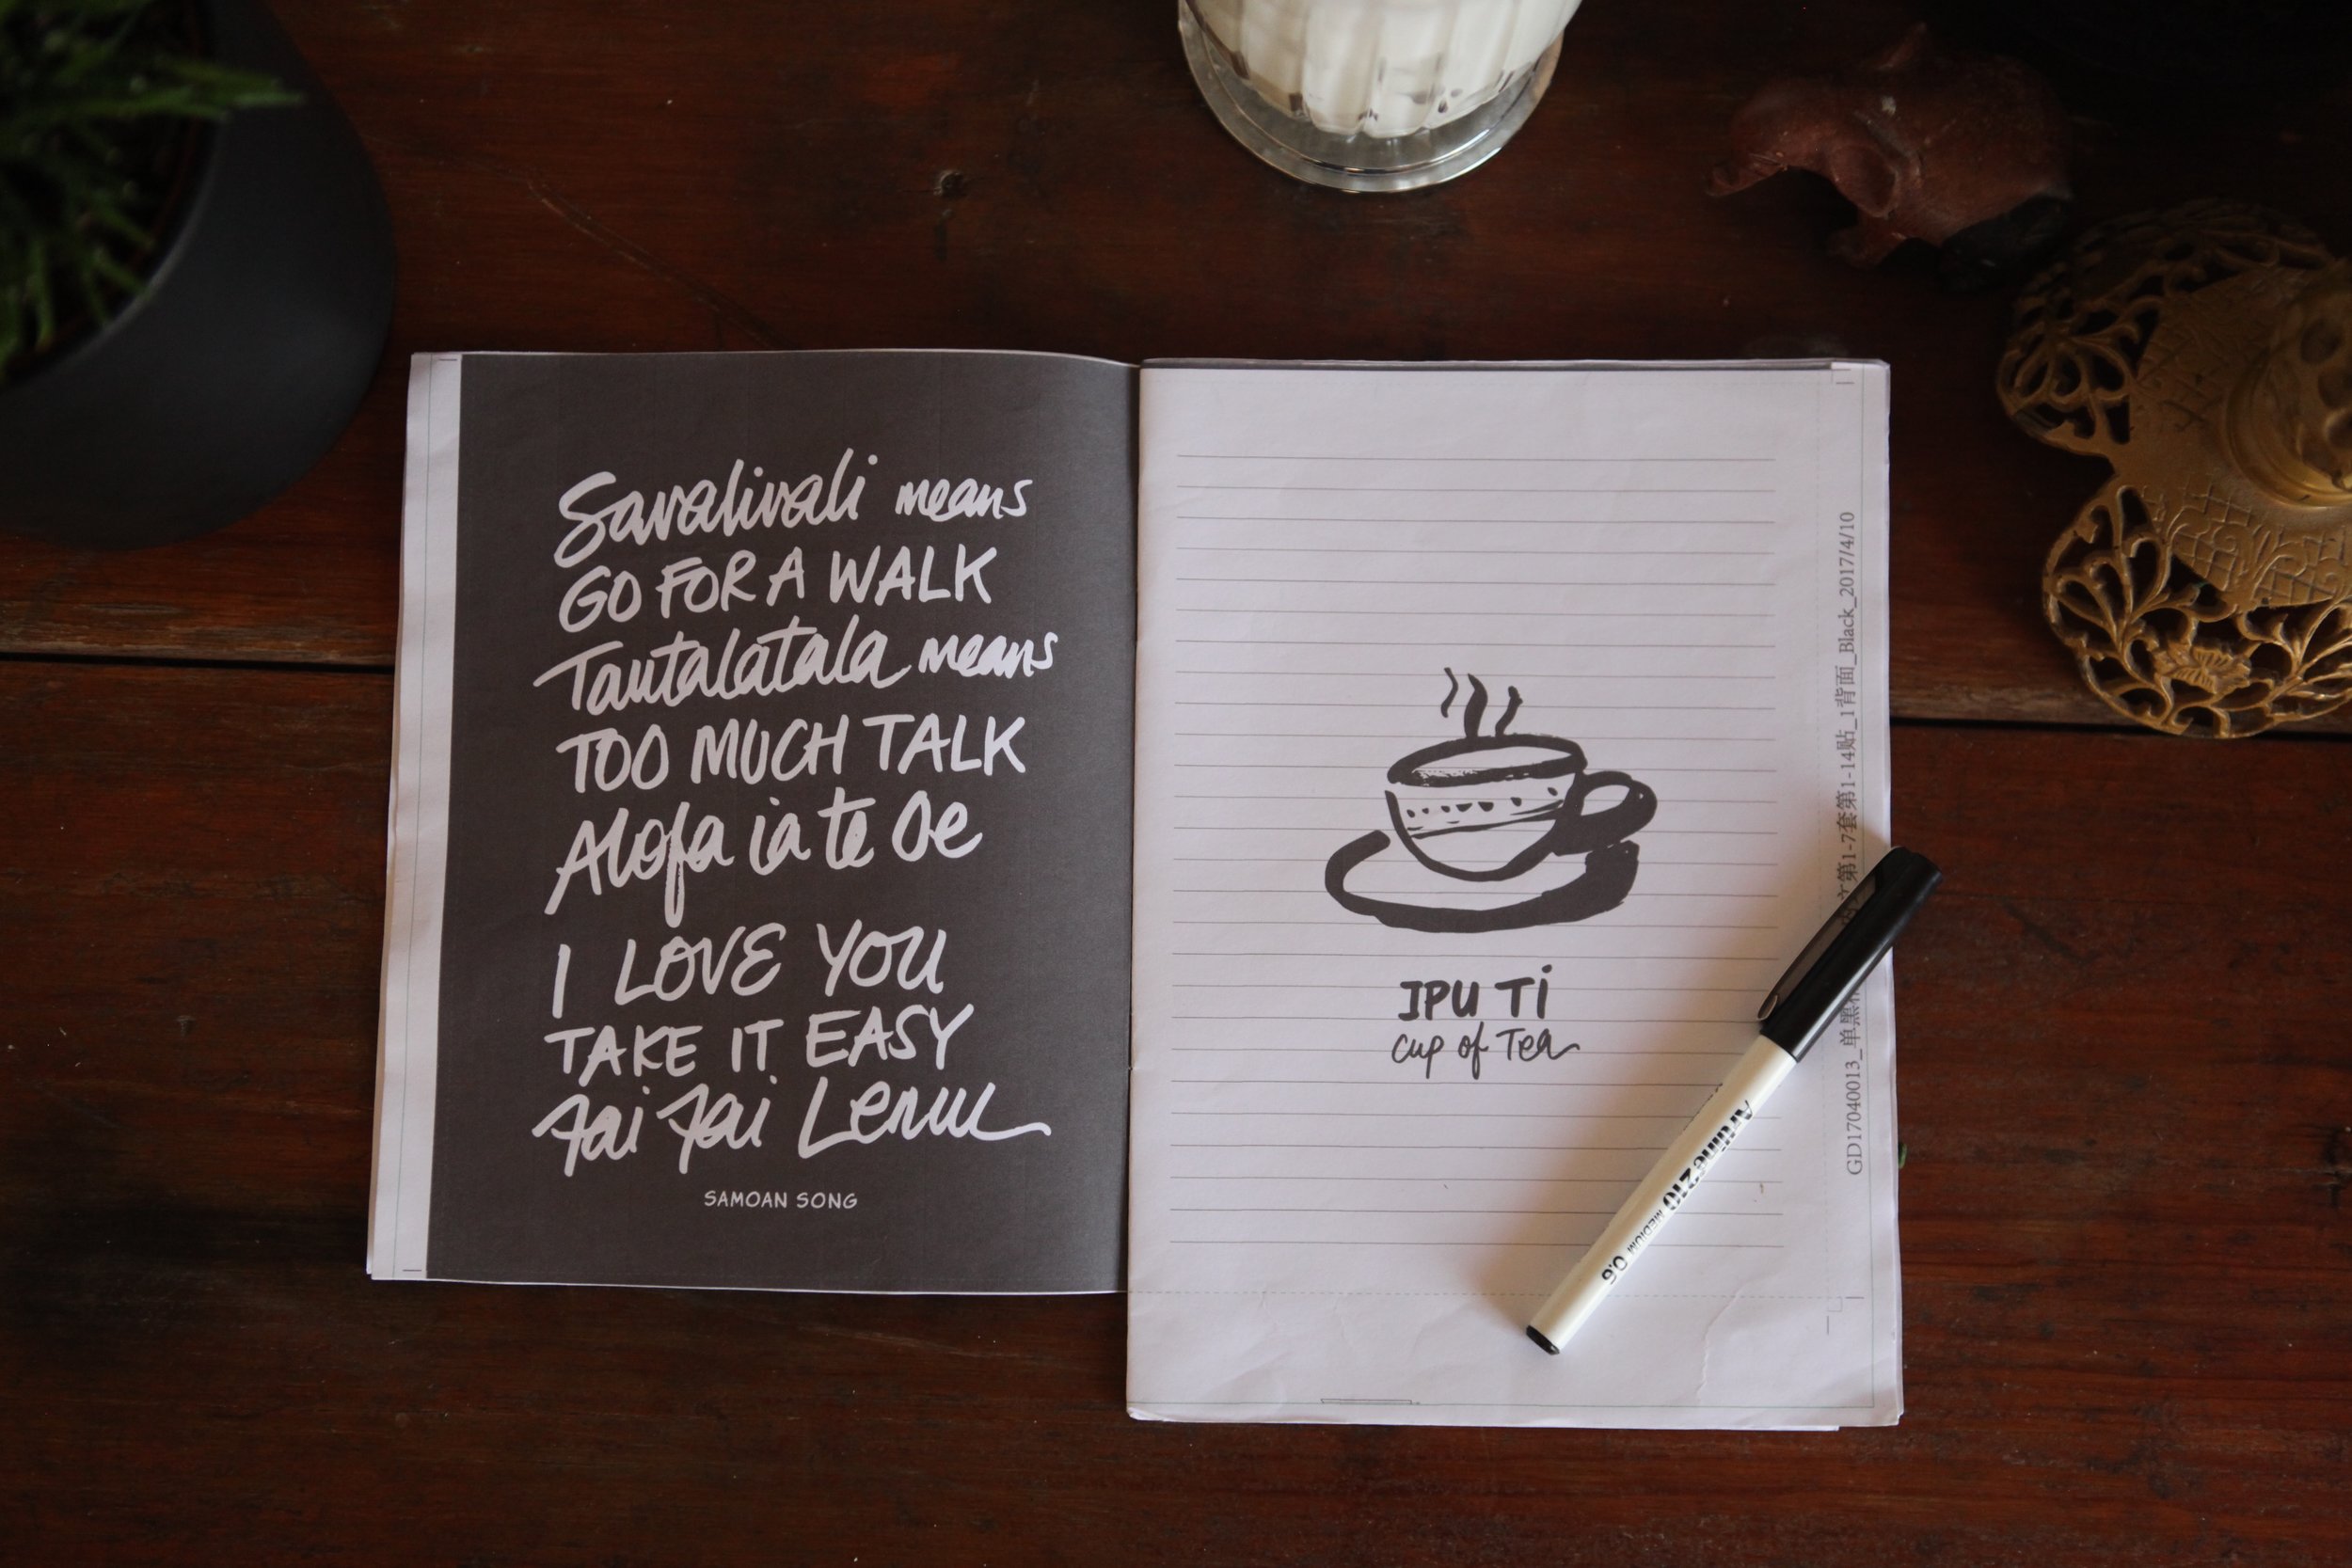 Savalivali means
GO FOR A WALK
Tautalatala means
TOO MUCH TALK
Alofa ia te Oe
I LOVE YOU
TAKE IT EASY
Fai Fai Lemu
SAMOAN SONG
IPU Ti
cup of Tea
Artline210 MEDIUM 0.6
GD17040013_单黑
文第1-7套第1-14贴_1背面_Black_2017/4/10